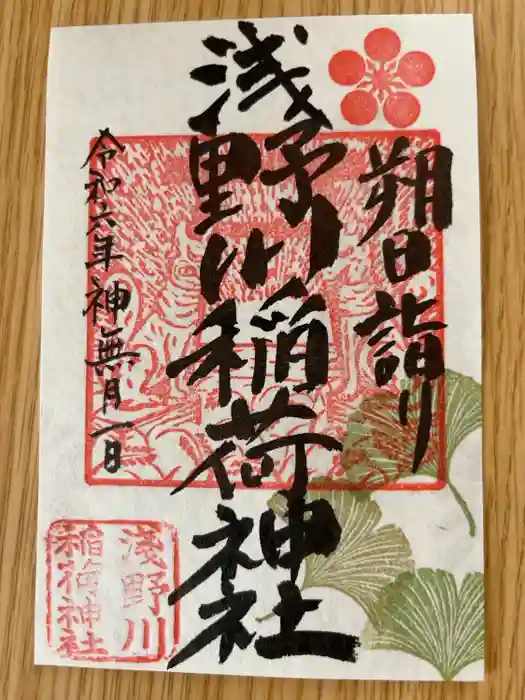 朔日詣り
浅野川稲荷神社
令和六年神無月一日
淺野川
稲荷神社